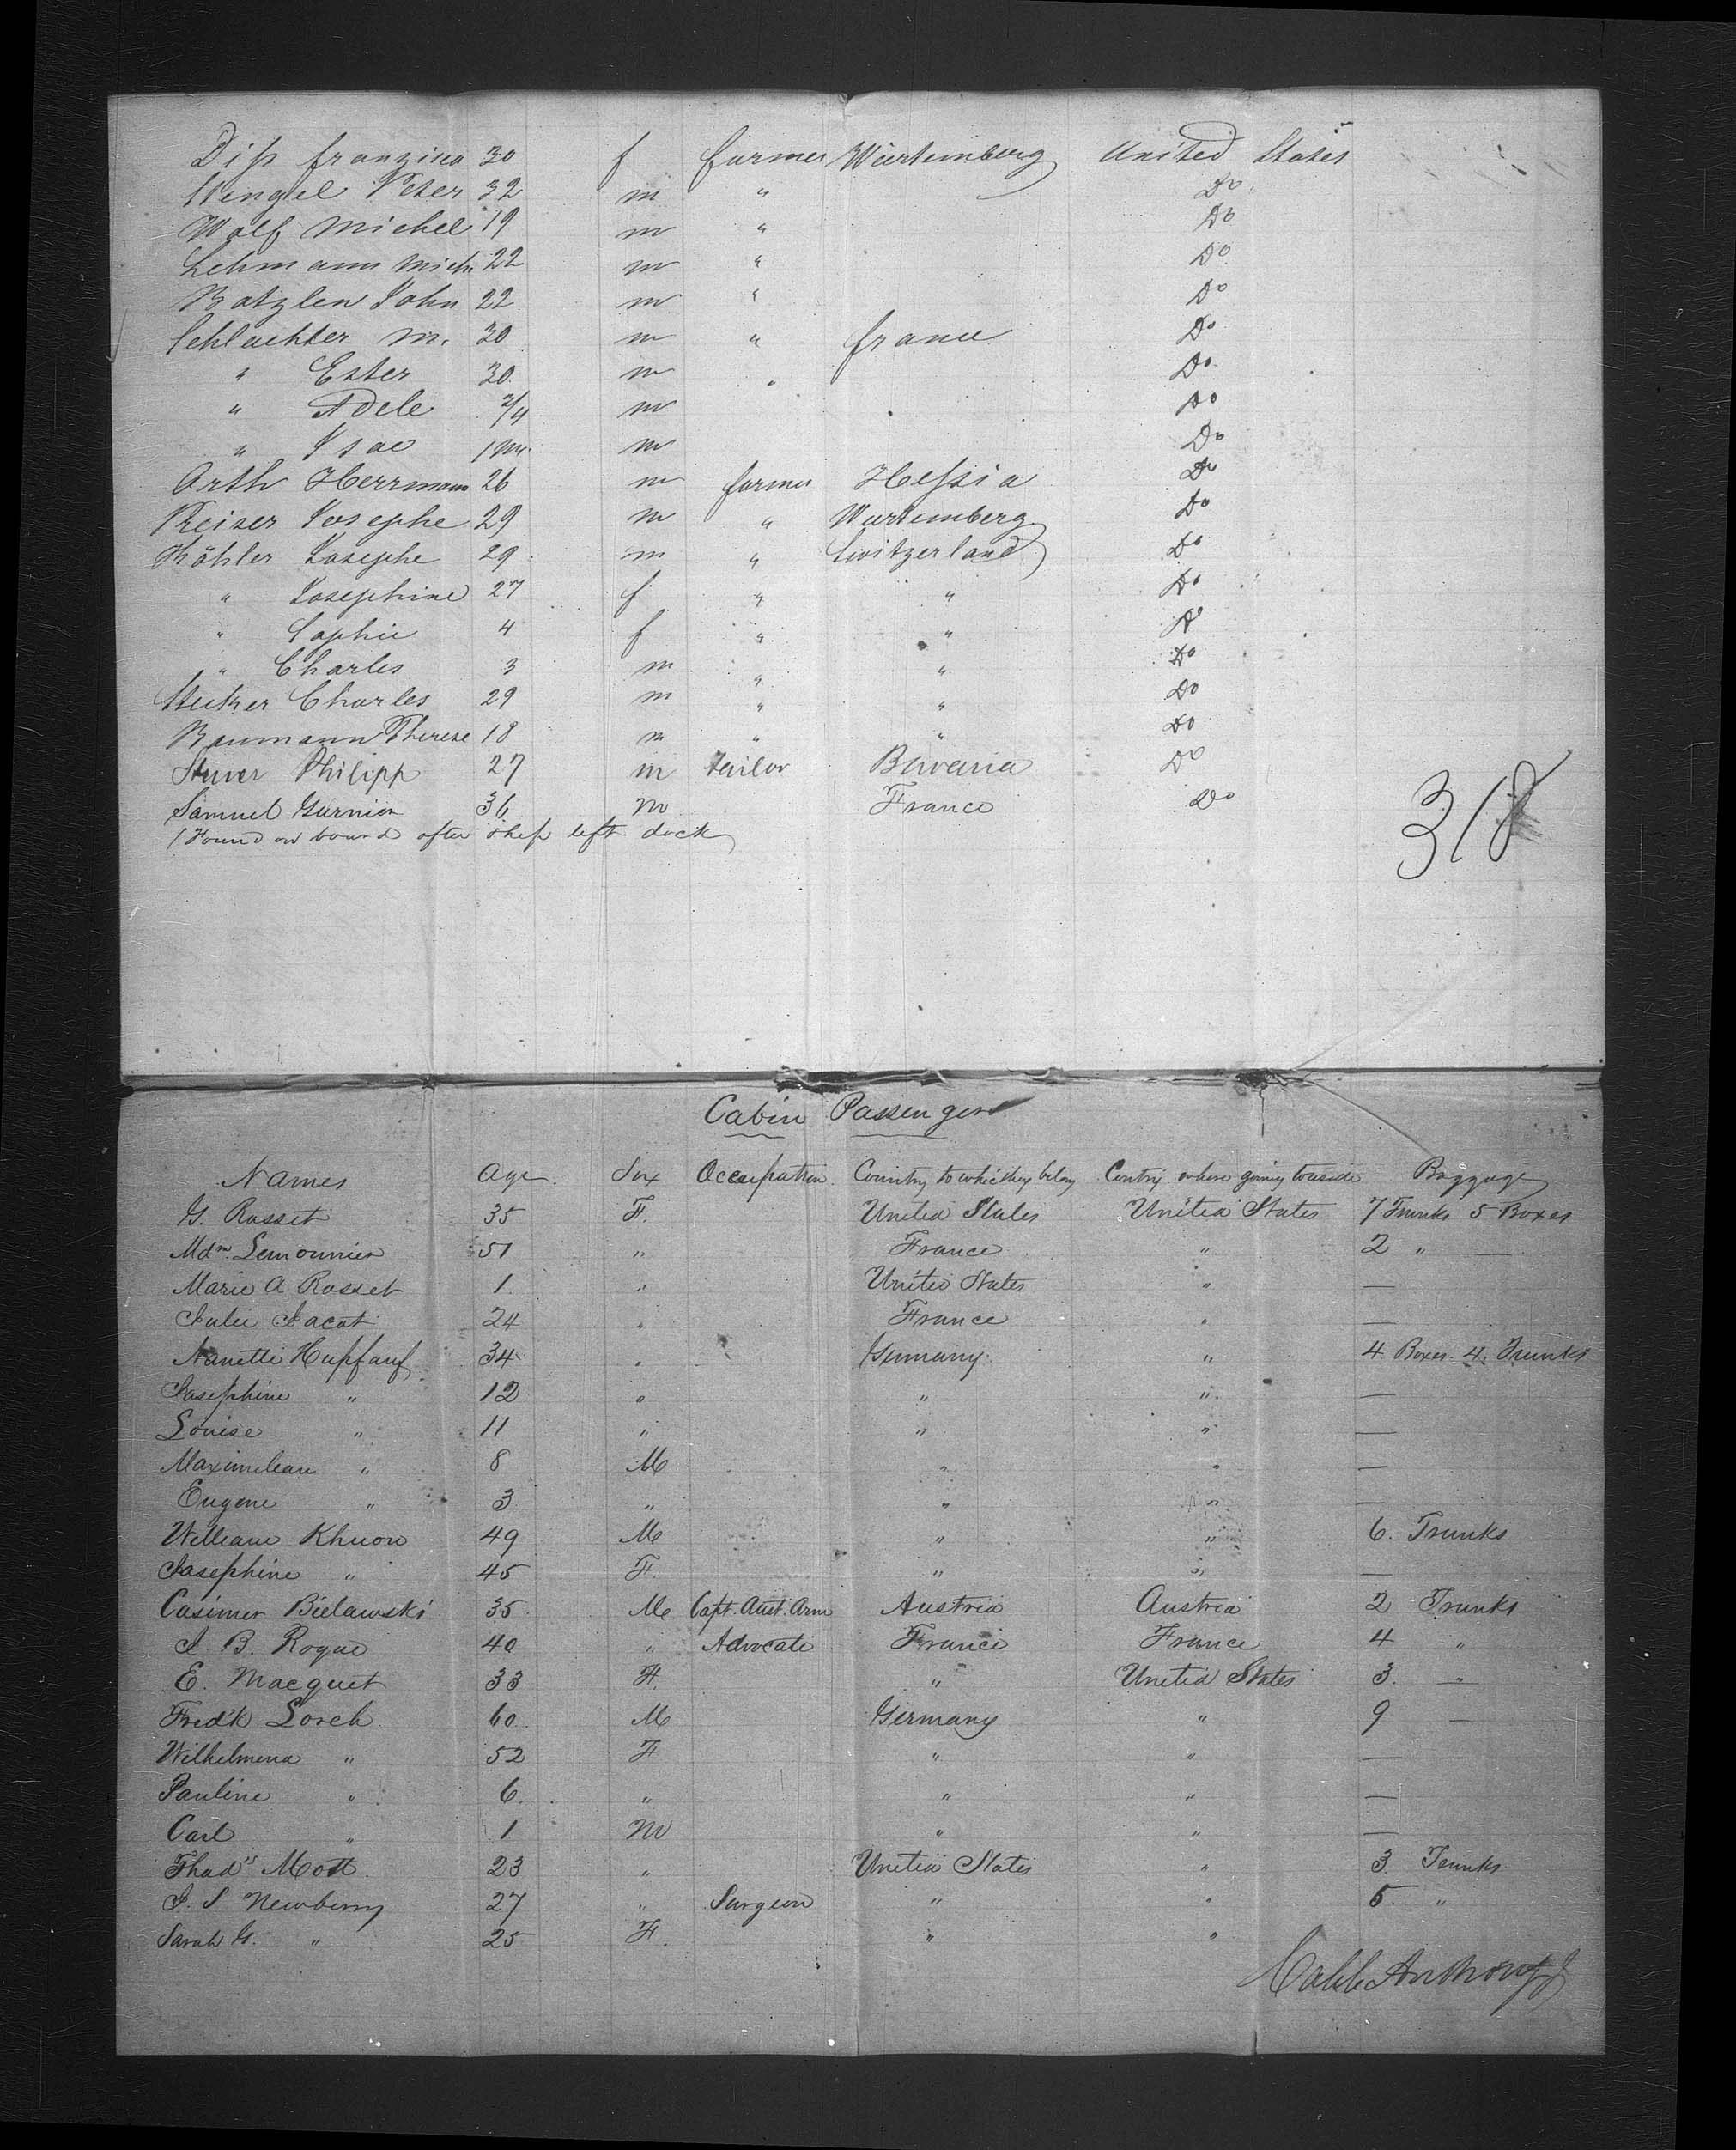 Diss franzisca 30 f farmer Würtemberg United States
Wengel Peter 32 m " Do
Wolf Michel 19 m " Do
Lehmann Mich. 22 m " Do
Batzlen John 22 m " Do
Schlachter M. 30 m " france Do
" Ester 30 m " Do
" Adele 3/4 m Do
" Isac 1 m. m Do
Arth Herrmann 26 m farmer Hessia Do
Keiser Josephe 29 m " Wurtemberg Do
Köhler Josephe 29 m " Switzerland Do
" Josephine 27 f " " Do
" Sophie 4 f " " Do
" Charles 3 m " " Do
Charles 29 m " " Do
Baumann Therese 18 m " " Do
Stuver Philipp 27 m tailor Bavaria Do
Samuel Garnier 36 m France Do
(Found on board after ship left dock)
318
Cabin Passengers
Names Age Sex Occupation Country to which they belong Contry where going to reside Baggage
G. Rosset 35 F. United States United States 7 Trunks 5 Boxes
Mdm Lemonnier 51 " France " 2 " —
Marie A Rosset 1 " United States " —
Julie Jacot 24 " France " —
Nanette Hupfauf 34 " Germany " 4 Boxes. 4. Trunks
Josephine " 12 " " " —
Louise " 11 " " " —
Maximilean " 8 M " " —
Eugene " 3 " " " —
William Khuon 49 M " " 6. Trunks
Josephine " 45 F " " —
Casimer Bielawski 35 M Capt. Aust. Arm Austria Austria 2 Trunks
J. B. Rogue 40 " Advocate France France 4 "
E. Macquet 33 F. " United States 3. "
Fred'k Lorch 60 M Germany " 9 —
Wilhelmena " 52 F " " —
Pauline " 6. " " " —
Carl " 1 M " " —
Thads Mott 23 " United States " 3. Trunks
J. S Newberry 27 " Surgeon " " 5. "
Sarah G. " 25 F " "
Caleb Anthony Jr